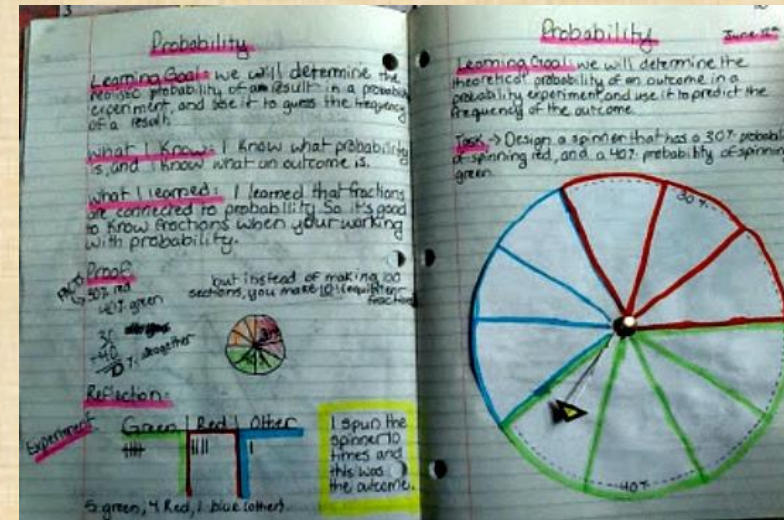 Probability
Learning Goal: we will determine the
realistic probability of an result in a probability
experiment, and use it to guess the frequency
of a result.
What I Know: I Know what probability
is, and I know what an outcome is.
What I learned: I learned that fractions
are connected to probability so it's good
to know fractions when your working
with probability.
Proof
FACTS
30% red
40% green
but instead of making 100
sections, you make 10! (equivilent
fraction
30
+40
% altogether
Reflection:
Experiment
Green Red Other
5 green, 4 Red, 1 blue (other).
I spun the
spinner 10
times and
this was
the outcome.
Probability
June
Learning Goal: we will determine the
theoretical probability of an outcome in a
probability experiment, and use it to predict the
frequency of the outcome.
Task → Design a spinner that has a 30% probabil
of spinning red, and a 40% probability of spinnin
green.
30%
40%